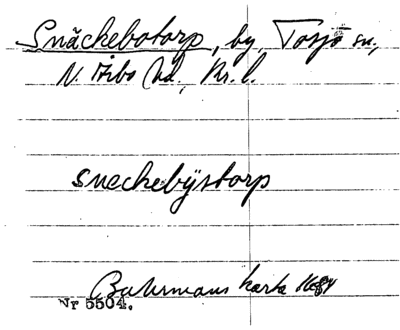 Snäckebotorp, by, Tosjö sn,
N. Åsbo hd, Kr. l.
sneckebÿstorp
Buhrmans karta 1684
Nr 5504.